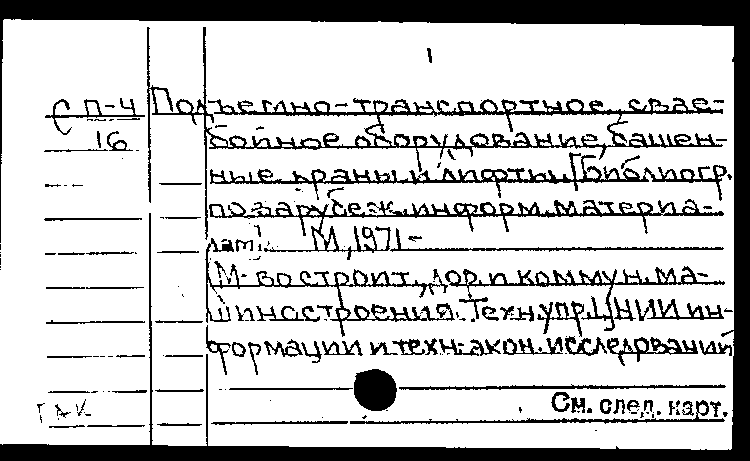 1
С П-4 Подъемно-транспортное, свае-
16 бойное оборудование, башен-
ные краны и лифты [Библиогр.
по зарубеж. информ. материа-
лам]. М., 1971-
(М-во строит., дор. и коммун. ма-
шиностроения. Техн. упр. ЦНИИ ин-
формации и техн.-экон. исследований
ГАК
См. след. карт.